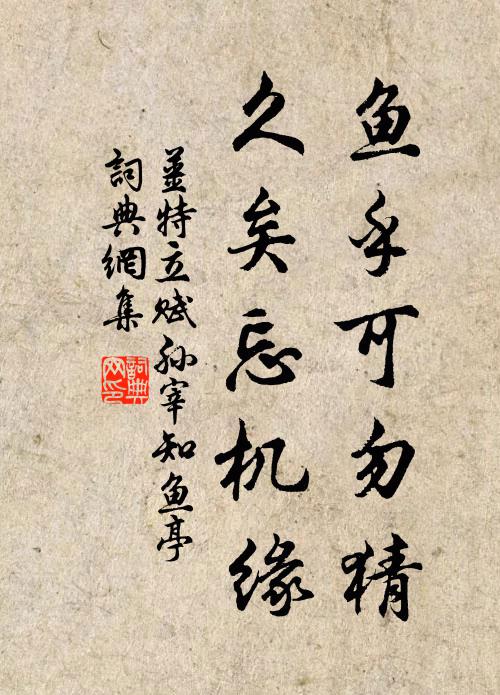 鱼乎可勿猜
久矣忘机缘
姜特立赋孙宰知鱼亭
詞典網集
詞典網印